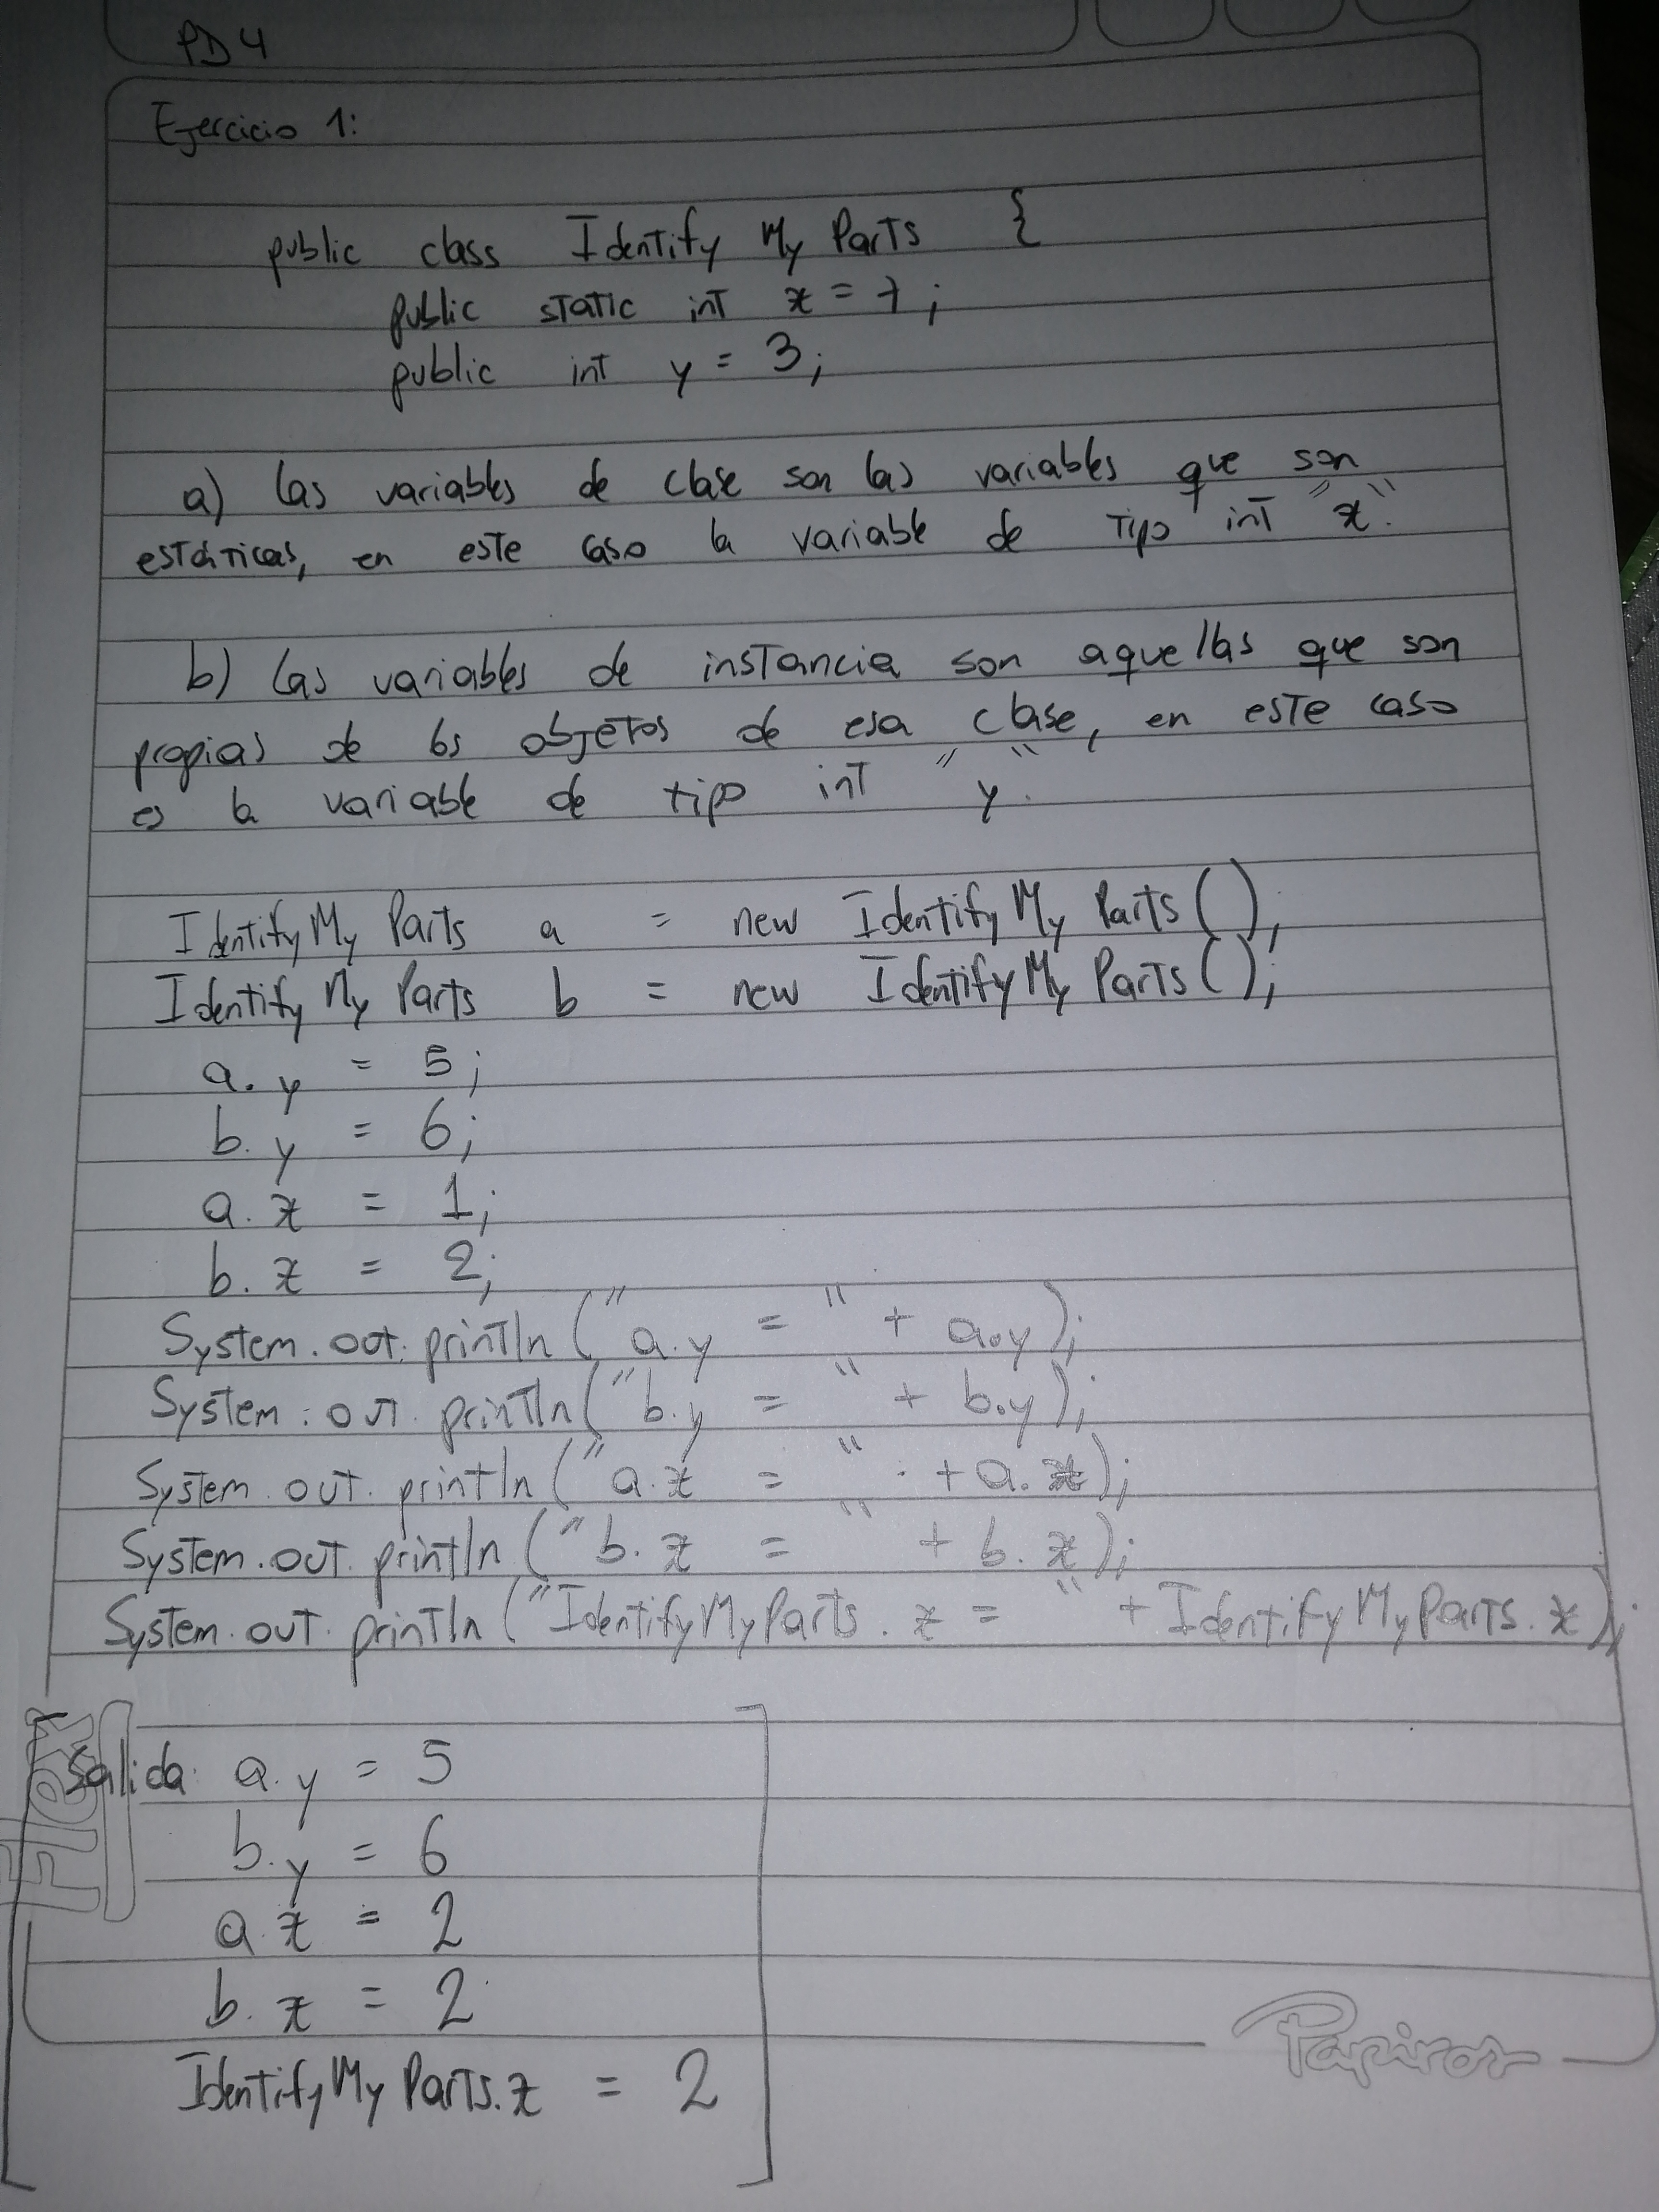 PD 4
Ejercicio 1:
public class IdentifyMyParts {
public static int x = 7;
public int y = 3;
a) Las variables de clase son las variables que son
estáticas, en este caso la variable de tipo int "x".
b) Las variables de instancia son aquellas que son
propias de los objetos de esa clase, en este caso
es la variable de tipo int "y".
IdentifyMyParts a = new IdentifyMyParts();
IdentifyMyParts b = new IdentifyMyParts();
a.y = 5;
b.y = 6;
a.x = 1;
b.x = 2;
System.out.println("a.y = " + a.y);
System.out.println("b.y = " + b.y);
System.out.println("a.x = " + a.x);
System.out.println("b.x = " + b.x);
System.out.println("IdentifyMyParts.x = " + IdentifyMyParts.x);
Salida: a.y = 5
b.y = 6
a.x = 2
b.x = 2
IdentifyMyParts.x = 2
Flex
Papiros